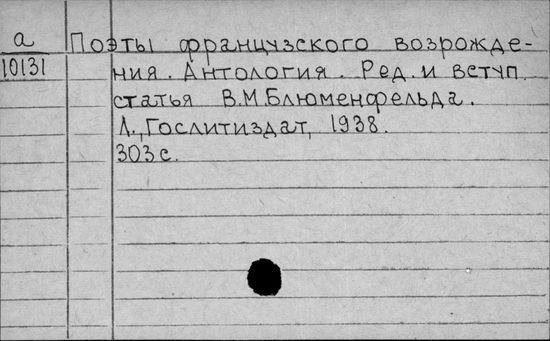 а Поэты французского возрожде-
10131 ния. Антология. Ред. и вступ.
статья В.М.Блюменфельда.
Л., Гослитиздат, 1938.
303 с.